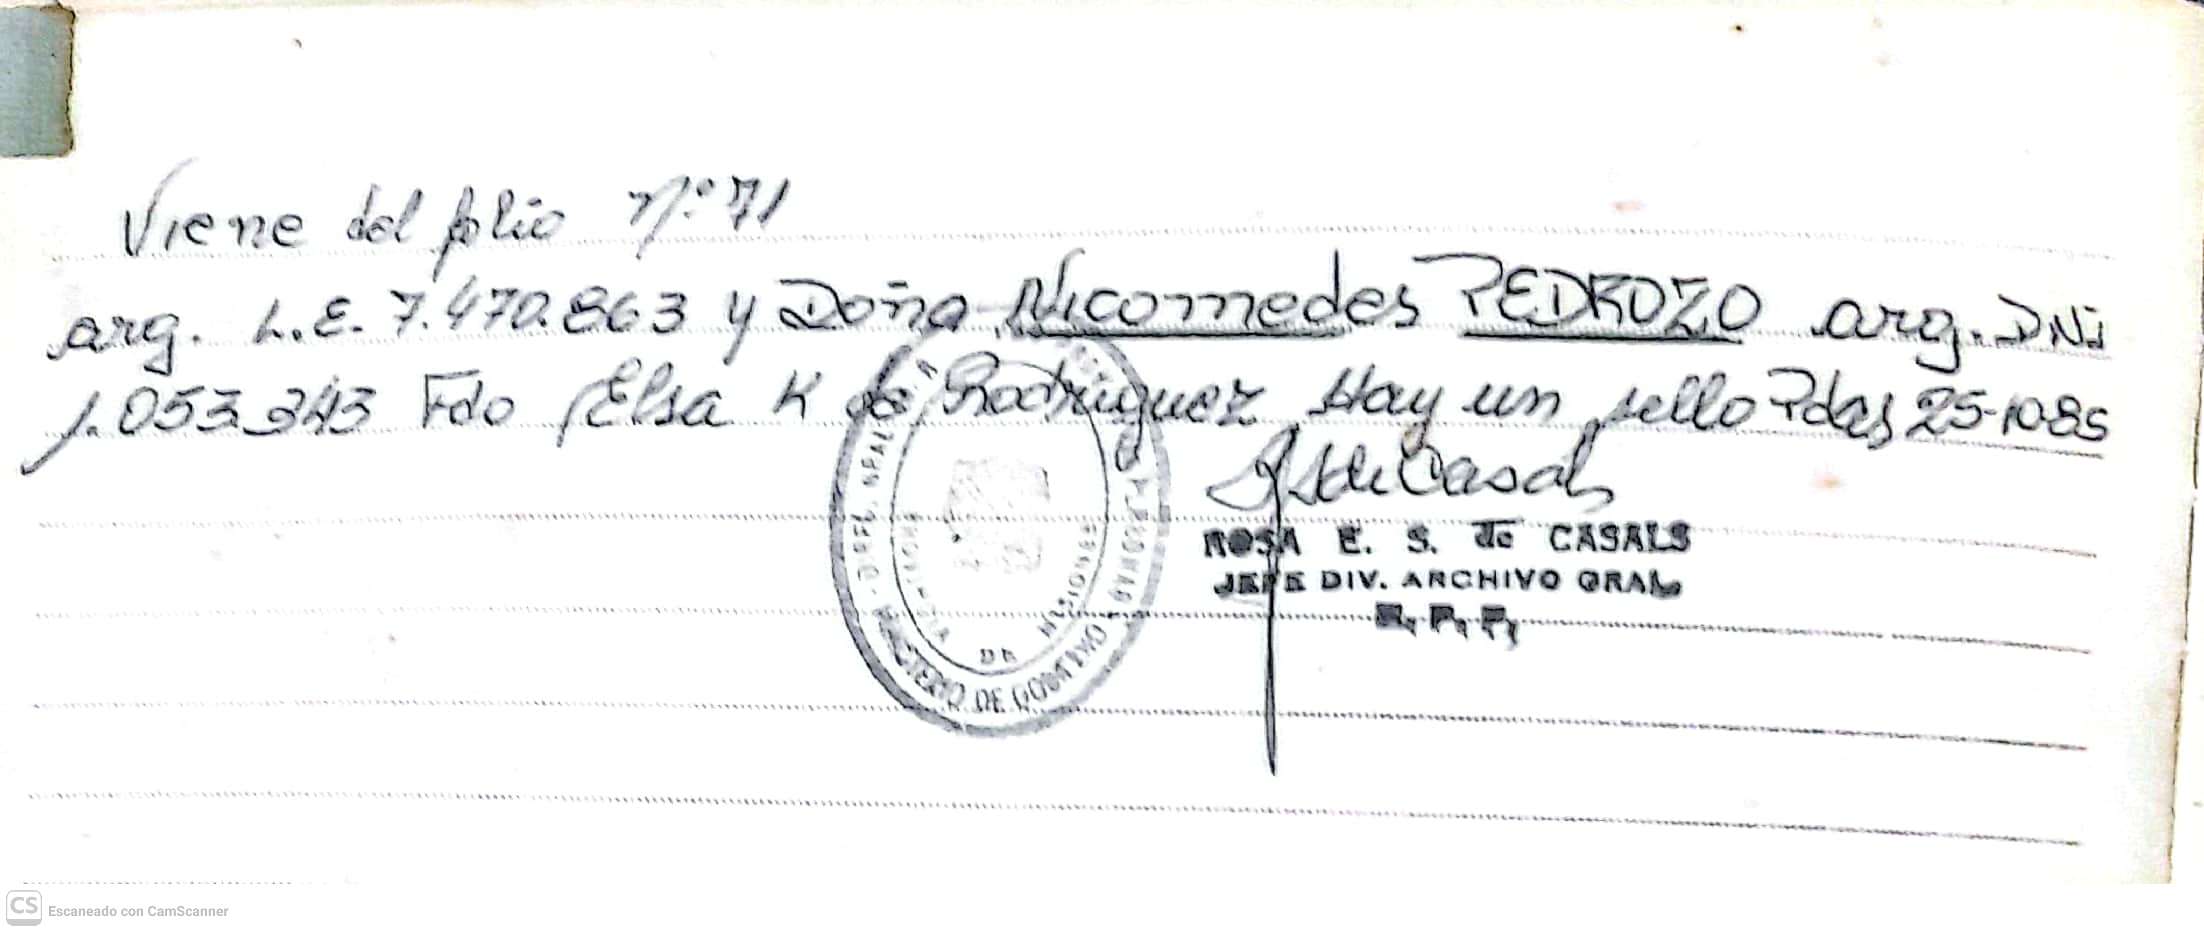 Viene del folio n:º 71
arg. L.E. 7.470.863 y Doña Nicomedes PEDROZO arg. DNi
1.053.343 Fdo Elsa K de Rodriguez Hay un sello Pdas 25-10-85
ROSA E. S. de CASALS
JEFE DIV. ARCHIVO GRAL
R. P. P.
MINISTERIO DE GOBIERNO
DE MISIONES
CS Escaneado con CamScanner